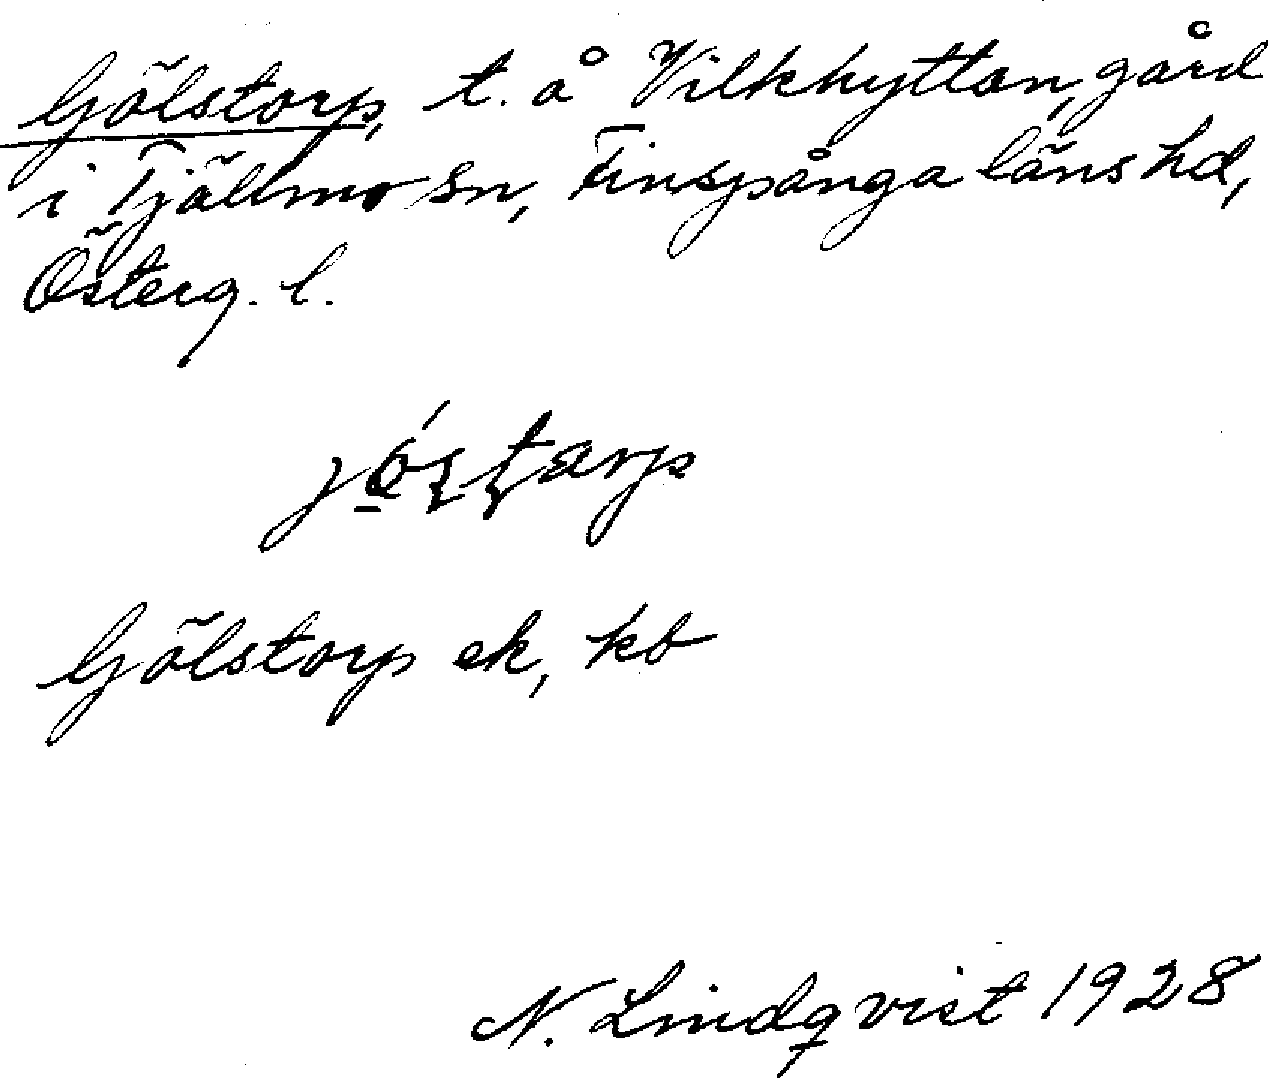 Gölstorp, t. å Vilkhyttan, gård
i Tjällmo sn, Finspånga läns hd,
Österg. l.
Gölstorp ek, kb
N. Lindqvist 1928